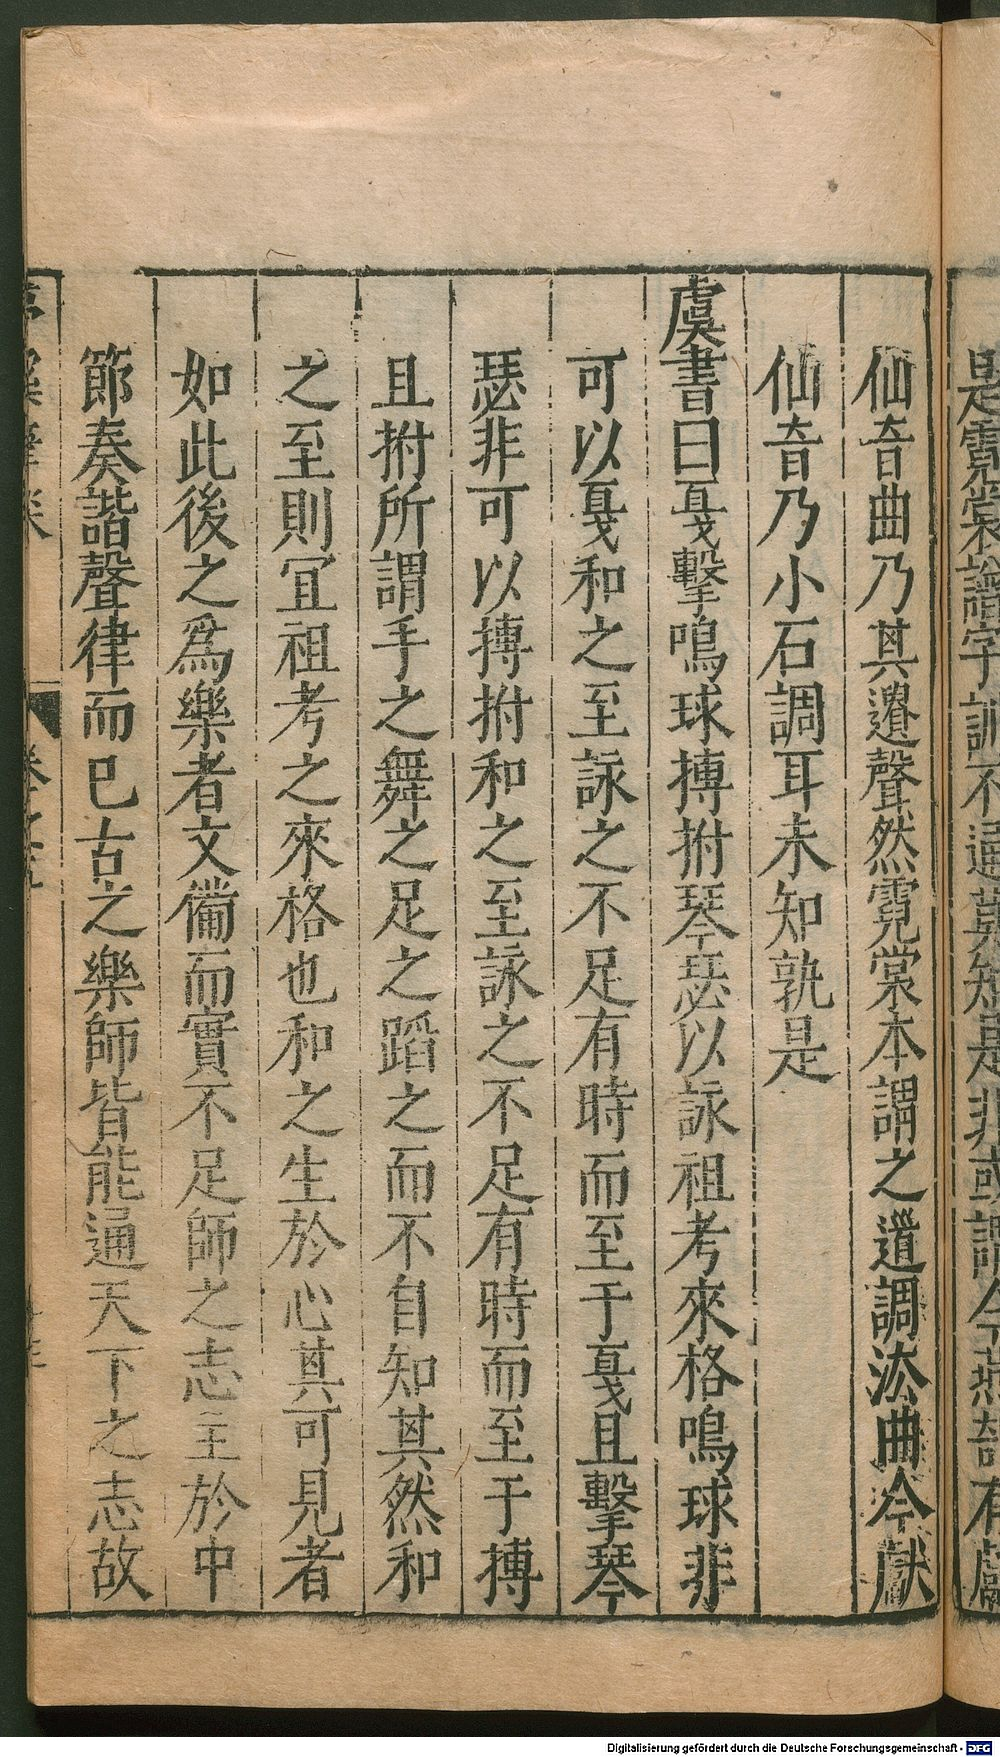 是霓裳譜字訓不通莫知是非或謂今燕部有獻
仙音曲乃其遺聲然霓裳本謂之道調法曲今獻
仙音乃小石調耳未知孰是
虞書曰戛擊鳴球搏拊琴瑟以詠祖考來格鳴球非
可以戛和之至詠之不足有時而至于戛且擊琴
瑟非可以搏拊和之至詠之不足有時而至于搏
且拊所謂手之舞之足之蹈之而不自知其然和
之至則冝祖考之來格也和之生於心其可見者
如此後之爲樂者文備而實不足師之志主於中
節奏諧聲律而已古之樂師皆能通天下之志故
Digitalisierung gefördert durch die Deutsche Forschungsgemeinschaft - DFG